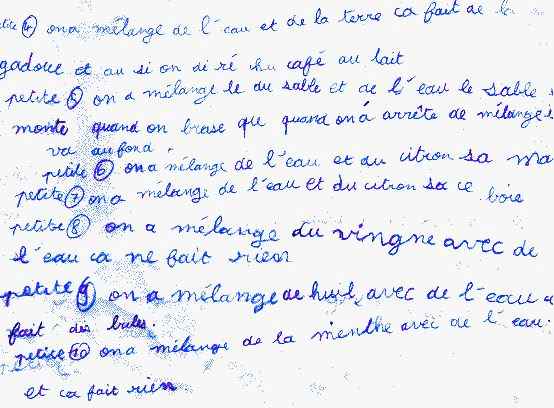 petite ④ on a mélange de l'eau et de la terre ca fait de la
gadoue et au si on di ré du café au lait
petite ⑤ on a mélange le du sable et de l'eau le sable
monte quand on brase que quand on à arrête de mélange
va au fond.
petite ⑥ on a mélange de l'eau et du citron sa ma
petite ⑦ on a mélange de l'eau et du citron sa ce boie
petite ⑧ on a mélange du vingne avec de
l'eau ca ne fait rien
petite ⑨ on a mélange de huil avec de l'eau
fait des bules.
petite ⑩ on a mélange de la menthe avec de l'eau.
et ca fait rien